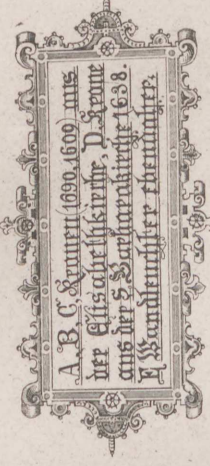 A, B, C, Krone (1690.1609) aus
der Elisabethkirche, D. Krone
aus der S. Bernharnkirche 1638.
E, Wandleuchter ebendaher.